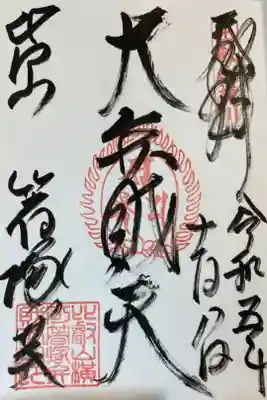 奉拝
令和五年
十月八日
大弁財天
叡山
箸塚
比叡山横
川箸塚弁